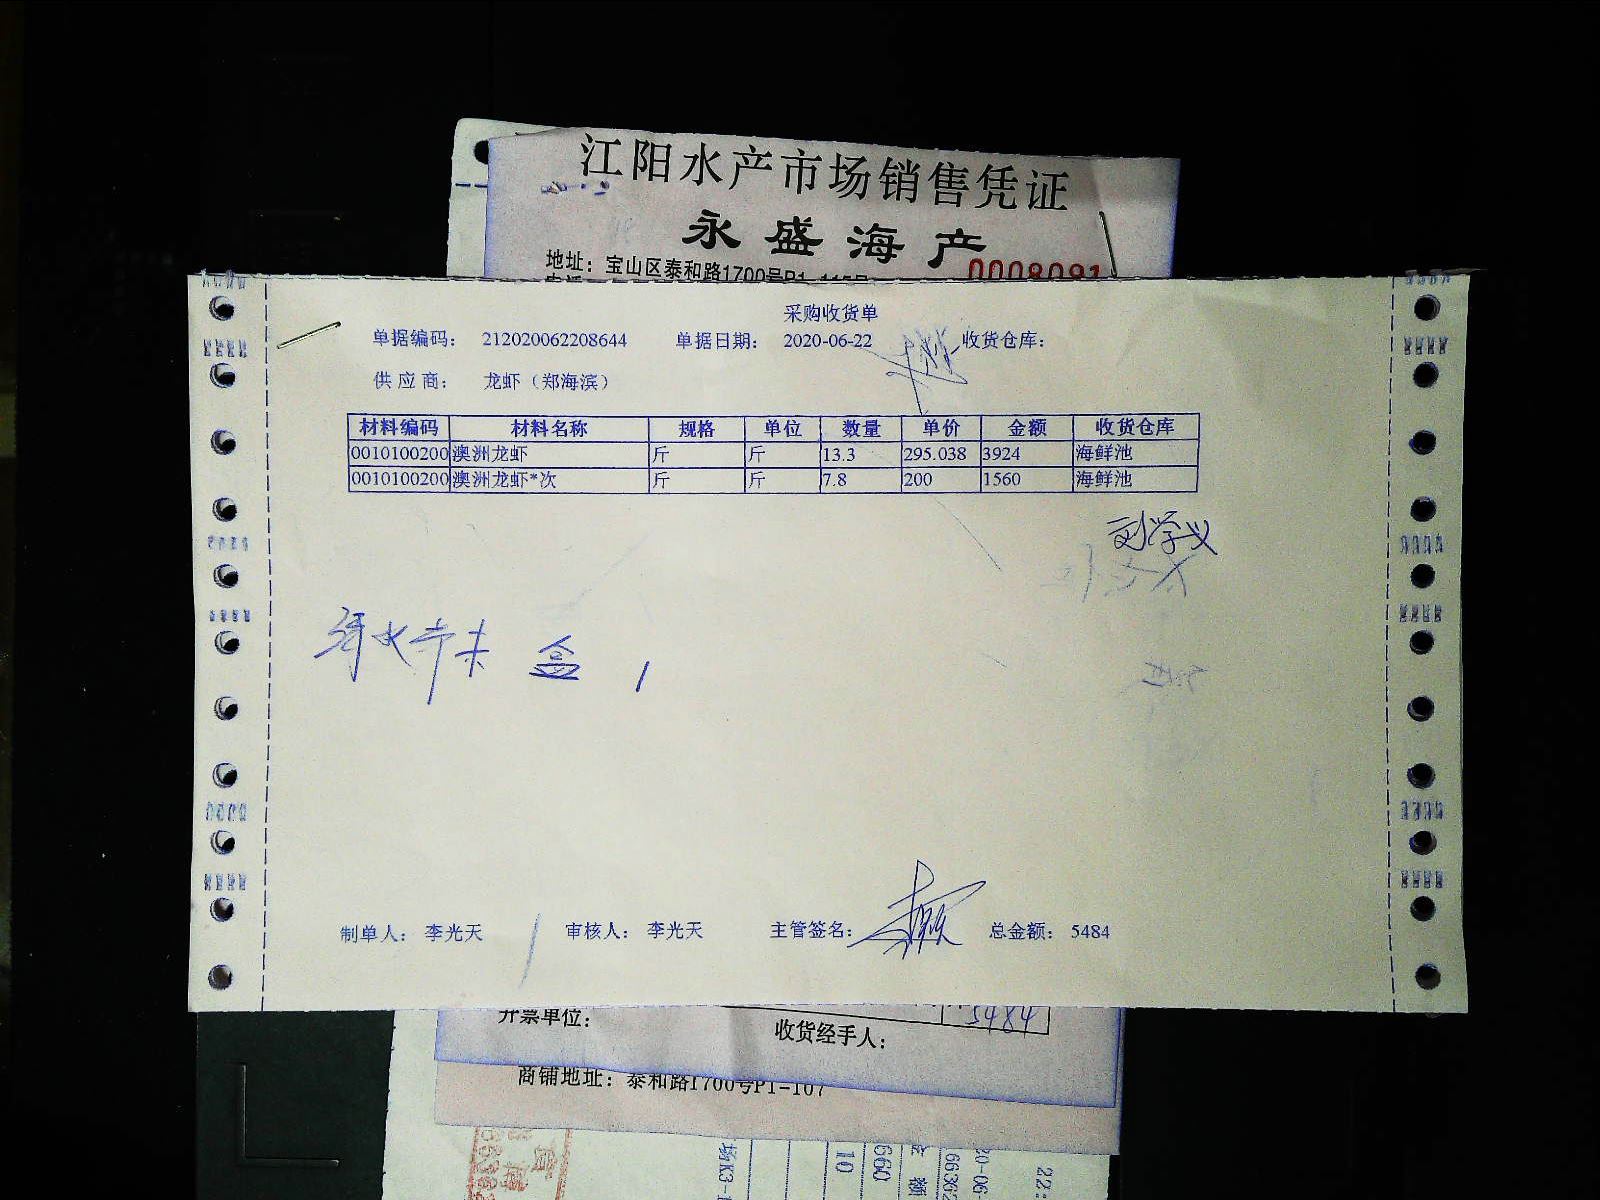 江阳水产市场销售凭证
永盛海产
地址：宝山区泰和路1700号P1-
0008091
采购收货单
单据编码： 212020062208644 单据日期： 2020-06-22 收货仓库：
供应商： 龙虾（郑海滨）
材料编码 材料名称 规格 单位 数量 单价 金额 收货仓库
0010100200 澳洲龙虾 斤 斤 13.3 295.038 3924 海鲜池
0010100200 澳洲龙虾*次 斤 斤 7.8 200 1560 海鲜池
刘学义
盒 1
制单人： 李光天 审核人： 李光天 主管签名： 总金额： 5484
5484
开票单位： 收货经手人：
商铺地址：泰和路1700号P1-107
场K3-1
10
660
额
20-06
66362
22: